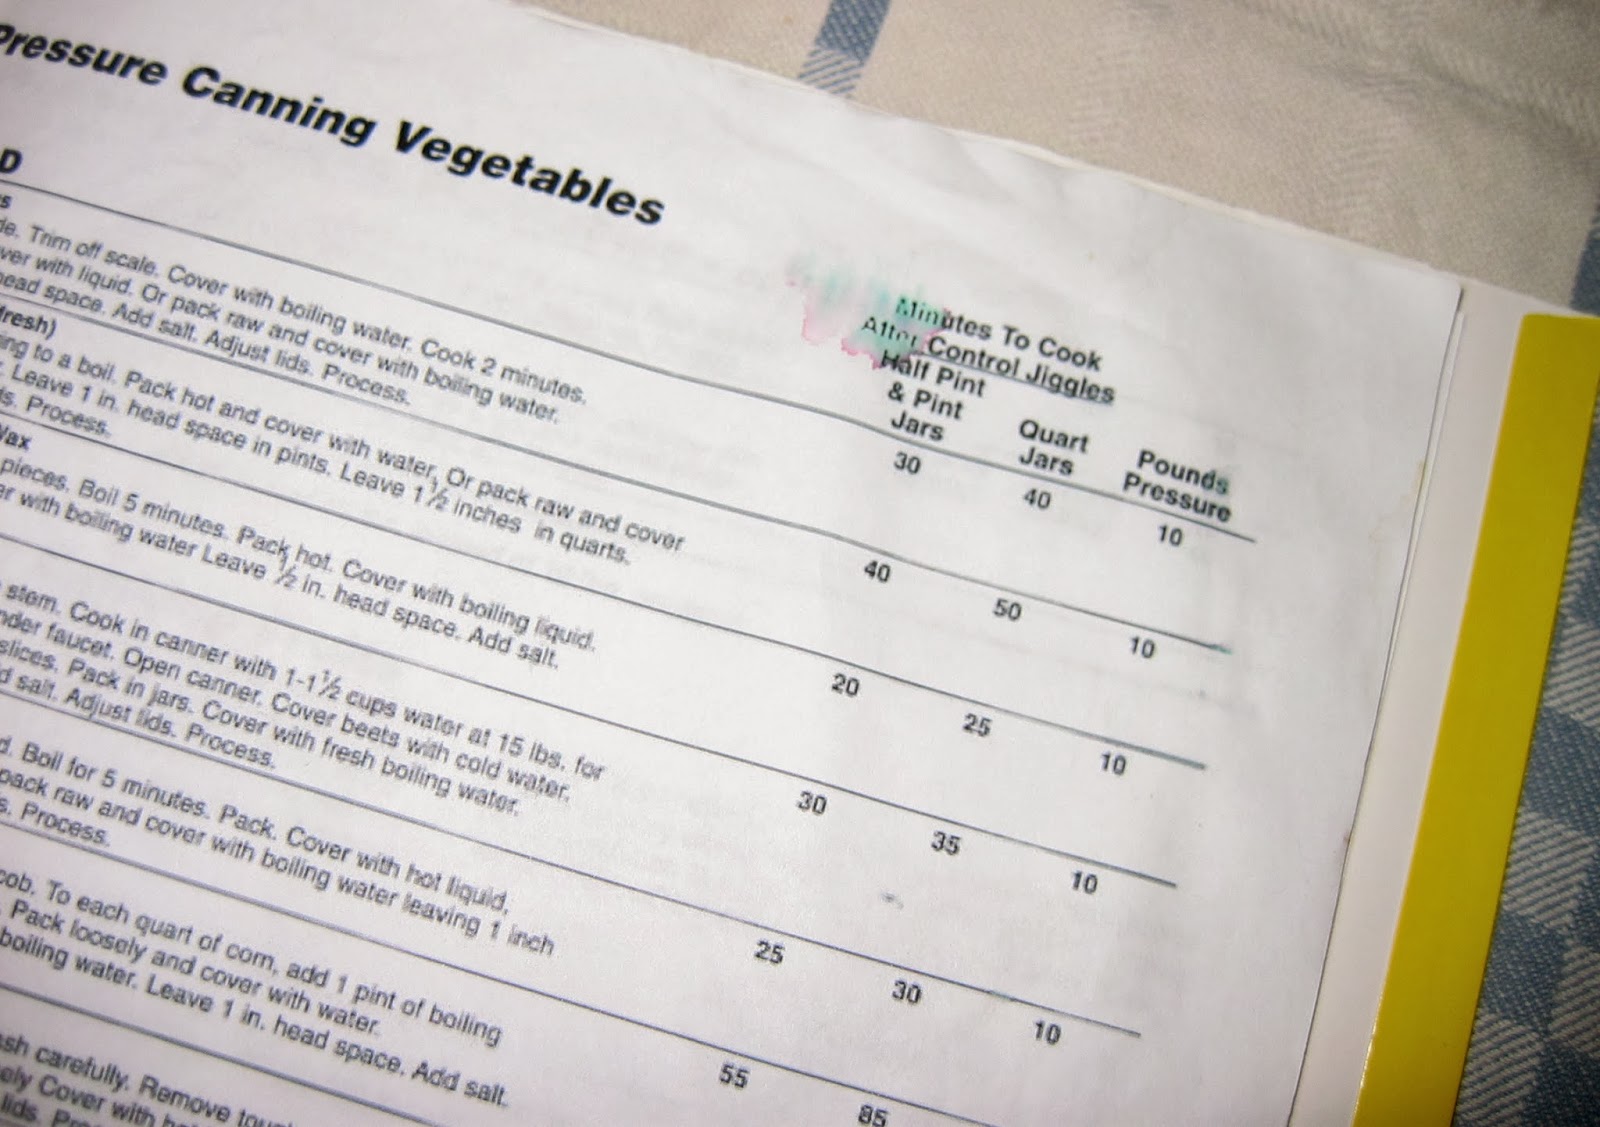 Pressure Canning Vegetables
Minutes To Cook
After Control Jiggles
Half Pint
& Pint
Jars
Quart
Jars
Pounds
Pressure
D
Trim off scale. Cover with boiling water. Cook 2 minutes.
with liquid. Or pack raw and cover with boiling water.
head space. Add salt. Adjust lids. Process.
30 40 10
fresh)
to a boil. Pack hot and cover with water. Or pack raw and cover
Leave 1 in. head space in pints. Leave 1 1/2 inches in quarts.
Process.
40 50 10
Wax
pieces. Boil 5 minutes. Pack hot. Cover with boiling liquid.
with boiling water Leave 1/2 in. head space. Add salt.
20 25 10
stem. Cook in canner with 1-1 1/2 cups water at 15 lbs. for
under faucet. Open canner. Cover beets with cold water.
slices. Pack in jars. Cover with fresh boiling water.
salt. Adjust lids. Process.
30 35 10
Boil for 5 minutes. Pack. Cover with hot liquid,
pack raw and cover with boiling water leaving 1 inch
Process.
25 30 10
cob. To each quart of corn, add 1 pint of boiling
Pack loosely and cover with water.
boiling water. Leave 1 in. head space. Add salt.
55 85
carefully. Remove
Cover with
lids.